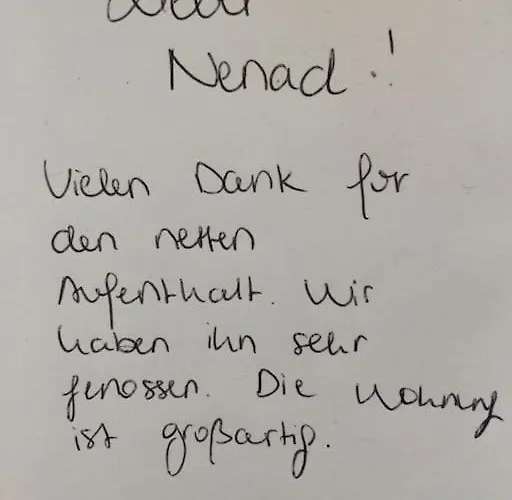 Nenad!
Vielen Dank for
den netten
Aufenthalt. Wir
haben ihn sehr
genossen. Die Wohnung
ist großartig.